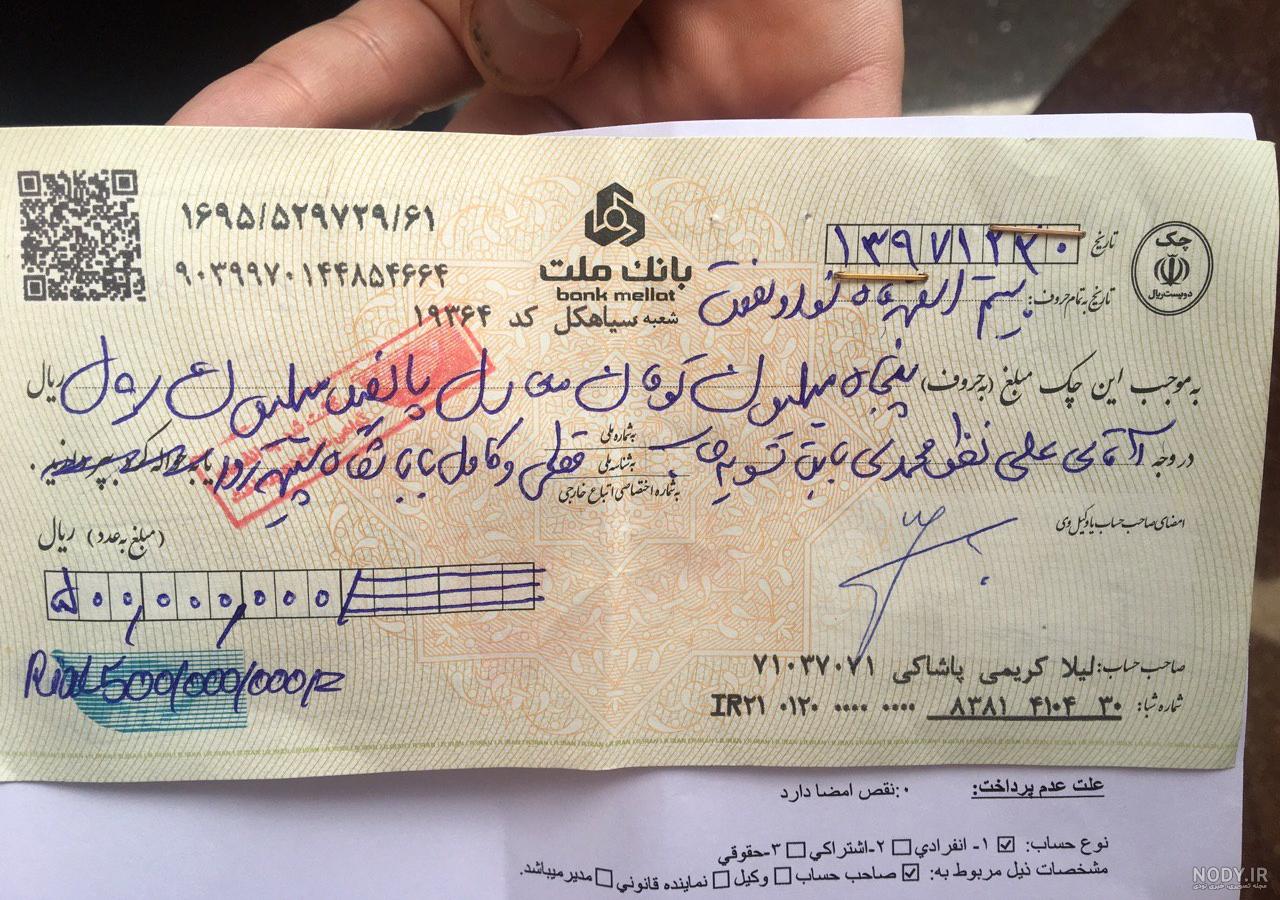 ۱۶۹۵/۵۲۹۷۲۹/۶۱
۹۰۳۹۹۷۰۱۴۴۸۵۴۶۶۴
بانك ملت
bank mellat
شعبه سیاهکل کد ۱۹۳۶۴
چک
دویست ریال
تاریخ ۱۳۹۷۱۲۳۰
تاریخ به تمام حروف: بیستم اسفند ماه نود و هفت
به موجب این چک مبلغ (به حروف) پنجاه میلیون تومان معادل پانصد میلیون ریال ریال
در وجه آقای علی محمدی بابت تسویه حساب
به شماره ملی
به شناسه ملی
به شماره اختصاصی اتباع خارجی
امضای صاحب حساب یا وکیل وی
(مبلغ به عدد) ریال
۵۰۰,۰۰۰,۰۰۰
Rial 500/000/000/
صاحب حساب: لیلا کریمی پاشاکی ۷۱۰۳۷۰۷۱
شماره شبا: IR۲۱ ۰۱۲۰ ۰۰۰۰ ۰۰۰۰ ۸۳۸۱ ۴۱۰۴ ۳۰
علت عدم پرداخت: ۰:نقص امضا دارد
نوع حساب: ☑ ۱- انفرادي ☐ ۲-اشتراكي ☐ ۳-حقوقي
مشخصات ذيل مربوط به: ☑ صاحب حساب ☐ وكيل ☐ نماينده قانوني ☐ مديرميباشد.
NODY.IR